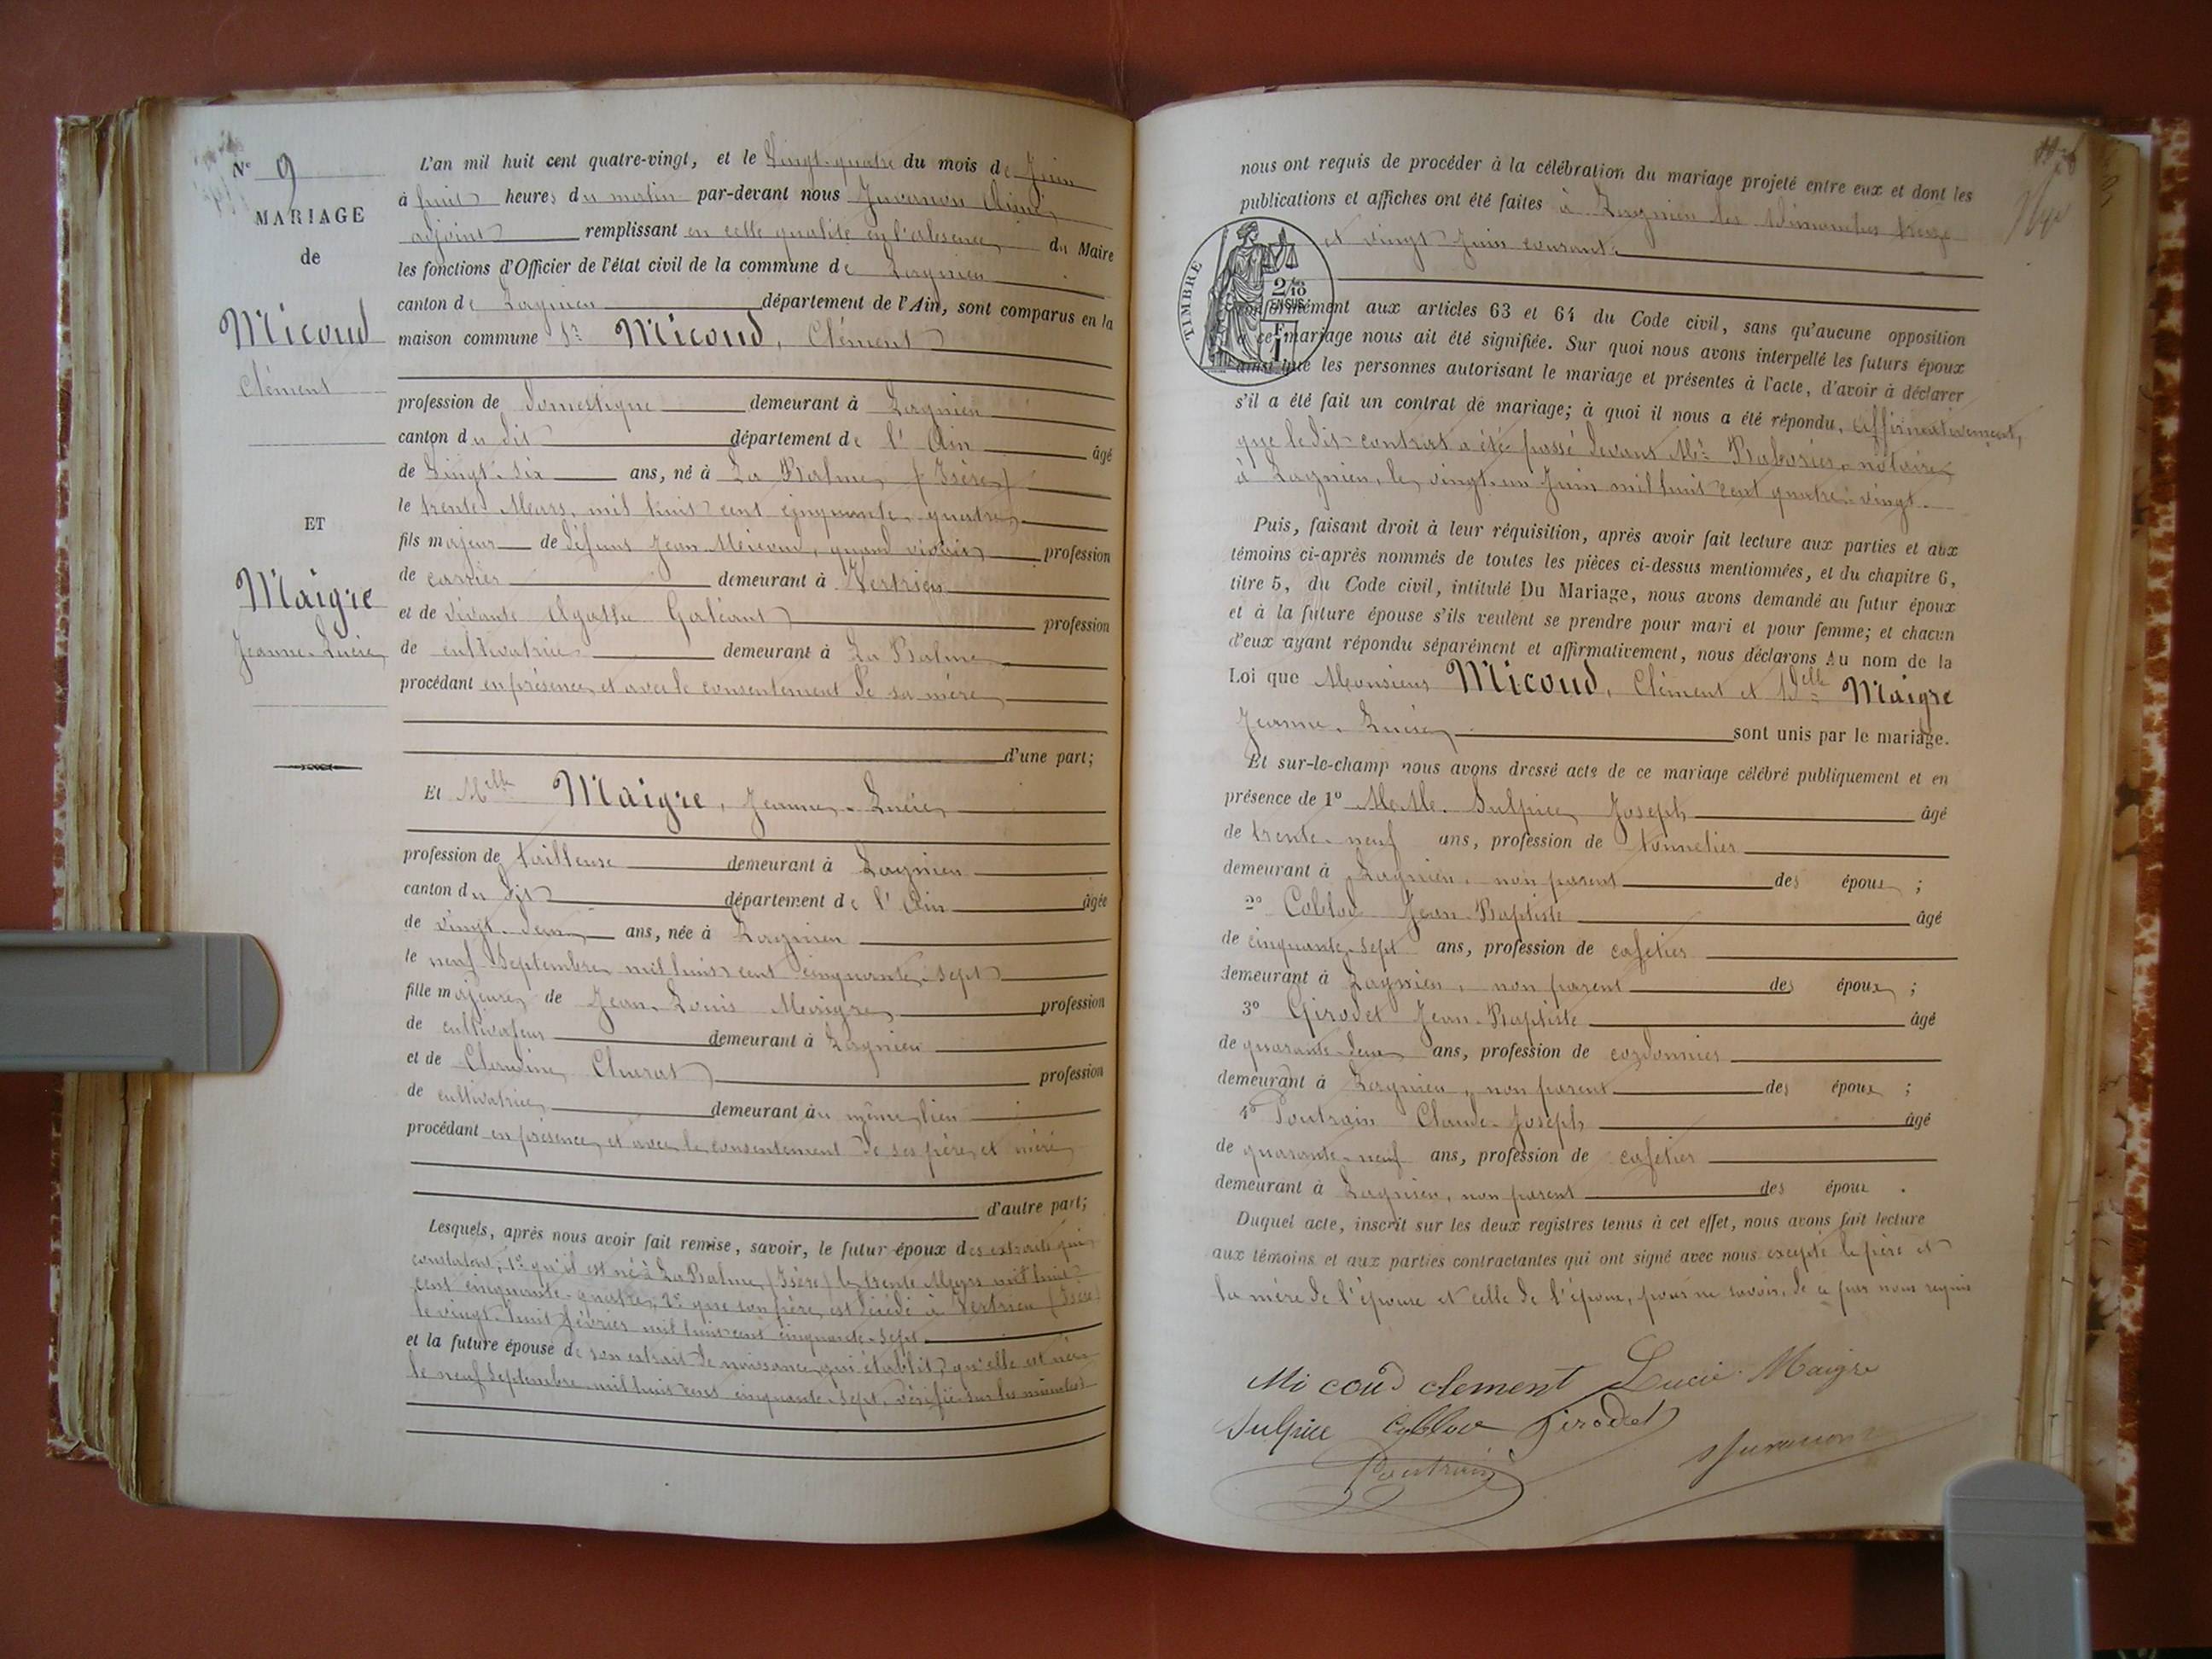 N° 9
MARIAGE
de
Micoud
Clément
ET
Maigre
Jeanne-Lucie
L'an mil huit cent quatre-vingt, et le vingt-quatre du mois de Juin
à huit heures du matin par-devant nous Juvanon Aimé,
adjoint remplissant en cette qualité en l'absence du Maire
les fonctions d'Officier de l'état civil de la commune de Lagnieu
canton de Lagnieu département de l'Ain, sont comparus en la
maison commune Sr Micoud, Clément
profession de domestique demeurant à Lagnieu
canton du dit département de l'Ain âgé
de vingt-six ans, né à La Balme (Isère)
le trente Mars, mil huit cent cinquante-quatre
fils majeur de défunt Jean Micoud, quand vivait profession
de carrier demeurant à Vertrieu
et de vivante Agathe profession
de cultivatrice demeurant à La Balme
procédant en présence et avec le consentement de sa mère
d'une part;
Et Melle Maigre, Jeanne-Lucie
profession de tailleuse demeurant à Lagnieu
canton du dit département de l'Ain âgée
de vingt-deux ans, née à Lagnieu
le neuf Septembre mil huit cent cinquante-sept
fille majeure de Jean-Louis Maigre profession
de cultivateur demeurant à Lagnieu
et de Claudine profession
de cultivatrice demeurant au même lieu
procédant en présence et avec le consentement de ses père et mère
d'autre part;
Lesquels, après nous avoir fait remise, savoir, le futur époux des extraits qui
constatent, 1° qu'il est né à La Balme (Isère) le trente Mars mil huit
cent cinquante-quatre, 2° que son père est décédé à Vertrieu (Isère)
le vingt-huit février mil huit cent cinquante-sept
et la future épouse de son extrait de naissance qui établit qu'elle est née
le neuf Septembre mil huit cent cinquante-sept, vérifié sur les minutes
nous ont requis de procéder à la célébration du mariage projeté entre eux et dont les
publications et affiches ont été faites à Lagnieu les dimanches treize
et vingt Juin courant.
TIMBRE
2/10
EN SUS
F.
1
conformément aux articles 63 et 64 du Code civil, sans qu'aucune opposition
à ce mariage nous ait été signifiée. Sur quoi nous avons interpellé les futurs époux
ainsi que les personnes autorisant le mariage et présentes à l'acte, d'avoir à déclarer
s'il a été fait un contrat de mariage; à quoi il nous a été répondu, affirmativement,
que le dit contrat a été passé devant Me notaire
à Lagnieu, le vingt-un Juin mil huit cent quatre-vingt.
Puis, faisant droit à leur réquisition, après avoir fait lecture aux parties et aux
témoins ci-après nommés de toutes les pièces ci-dessus mentionnées, et du chapitre 6,
titre 5, du Code civil, intitulé Du Mariage, nous avons demandé au futur époux
et à la future épouse s'ils veulent se prendre pour mari et pour femme; et chacun
d'eux ayant répondu séparément et affirmativement, nous déclarons Au nom de la
Loi que Monsieur Micoud, Clément et Delle Maigre
Jeanne-Lucie sont unis par le mariage.
Et sur-le-champ nous avons dressé acte de ce mariage célébré publiquement et en
présence de 1° M.M. Sulpice Joseph âgé
de trente-neuf ans, profession de tonnelier
demeurant à Lagnieu, non parent des époux ;
2° Collod Jean-Baptiste âgé
de cinquante-sept ans, profession de cafetier
demeurant à Lagnieu, non parent des époux ;
3° Girodet Jean-Baptiste âgé
de quarante-deux ans, profession de cordonnier
demeurant à Lagnieu, non parent des époux ;
4° Poutrain Claude-Joseph âgé
de quarante-neuf ans, profession de cafetier
demeurant à Lagnieu, non parent des époux .
Duquel acte, inscrit sur les deux registres tenus à cet effet, nous avons fait lecture
aux témoins et aux parties contractantes qui ont signé avec nous excepté le père et
la mère de l'épouse et celle de l'époux, pour ne savoir, de ce par nous requis
Mi coud clement Lucie Maigre
Sulpice Collod Girodet
Poutrain Juvanon